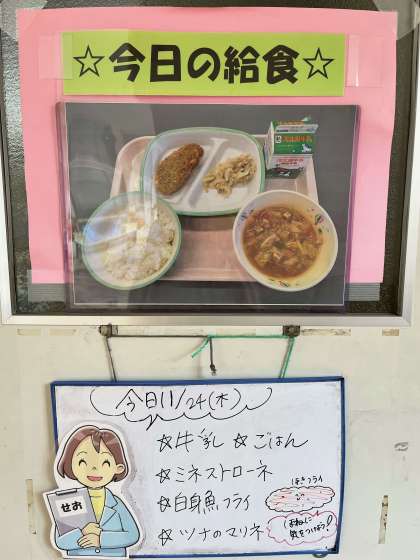 ☆今日の給食☆
今日11/24(木)
☆牛乳 ☆ごはん
☆ミネストローネ
☆白身魚フライ
☆ツナのマリネ
ほきフライ
です。
ほねに
気をつけよう!
せお